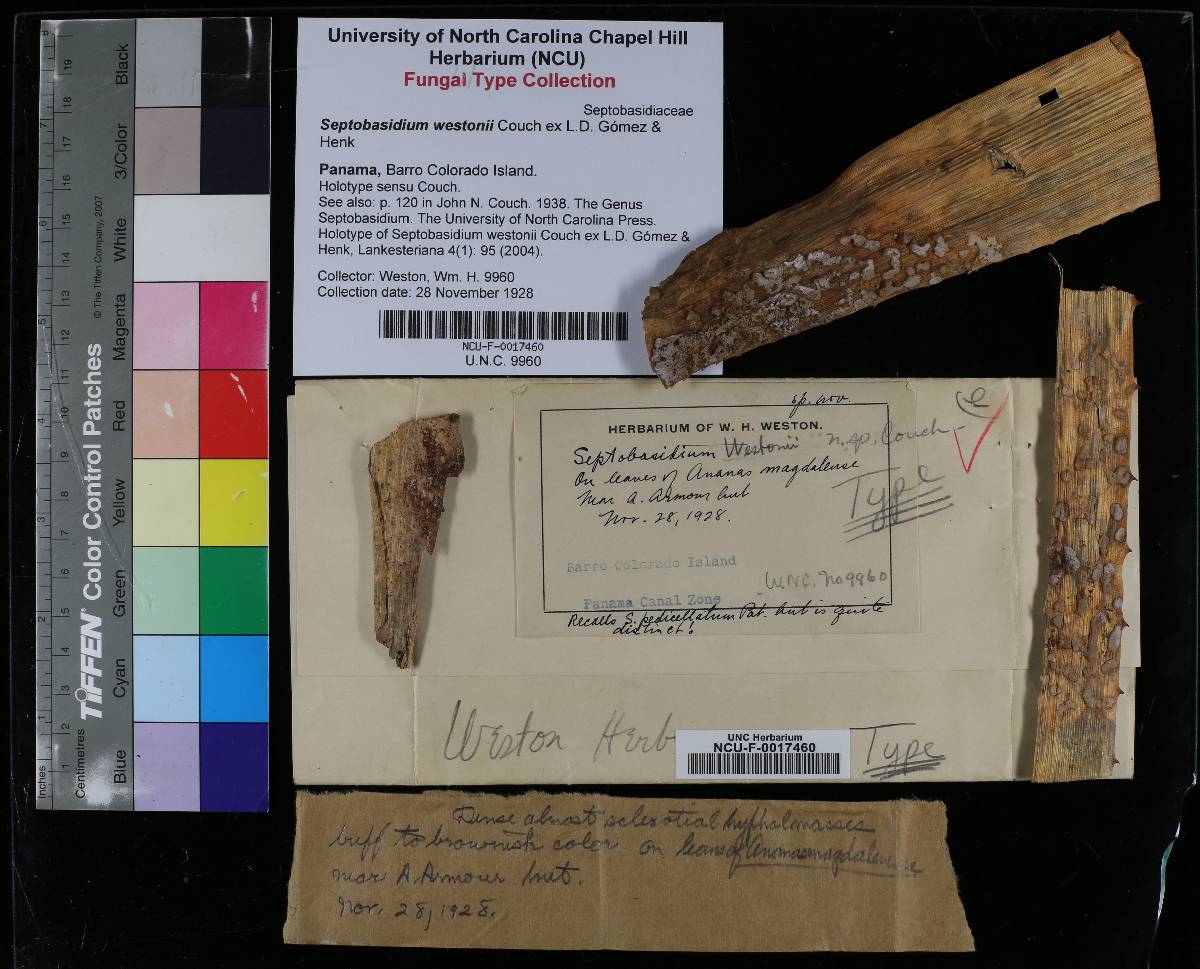 University of North Carolina Chapel Hill
Herbarium (NCU)
Fungal Type Collection
Septobasidiaceae
Septobasidium westonii Couch ex L.D. Gómez &
Henk
Panama, Barro Colorado Island.
Holotype sensu Couch.
See also: p. 120 in John N. Couch. 1938. The Genus
Septobasidium. The University of North Carolina Press.
Holotype of Septobasidium westonii Couch ex L.D. Gómez &
Henk, Lankesteriana 4(1): 95 (2004).
Collector: Weston, Wm. H. 9960
Collection date: 28 November 1928
NCU-F-0017460
U.N.C. 9960
sp. nov.
HERBARIUM OF W. H. WESTON.
Septobasidium Westonii n. sp. Couch
On leaves of Ananas magdalense
Near A. Armour hut
Nov. 28, 1928.
Type
Barro Colorado Island
U.N.C. No 9960
Panama Canal Zone
Recalls S. pedicellatum Pat. but is quite
distinct!
Weston Herb
UNC Herbarium
NCU-F-0017460
Type
Dense almost sclerotial hyphal masses
buff to brownish color on leaves of Ananas magdalenense
near A. Armour hut.
Nov. 28, 1928.
Inches
Centimetres
TIFFEN Color Control Patches
© The Tiffen Company, 2007
Blue
Cyan
Green
Yellow
Red
Magenta
White
3/Color
Black
1 2 3 4 5 6 7 8
1 2 3 4 5 6 7 8 9 10 11 12 13 14 15 16 17 18 19